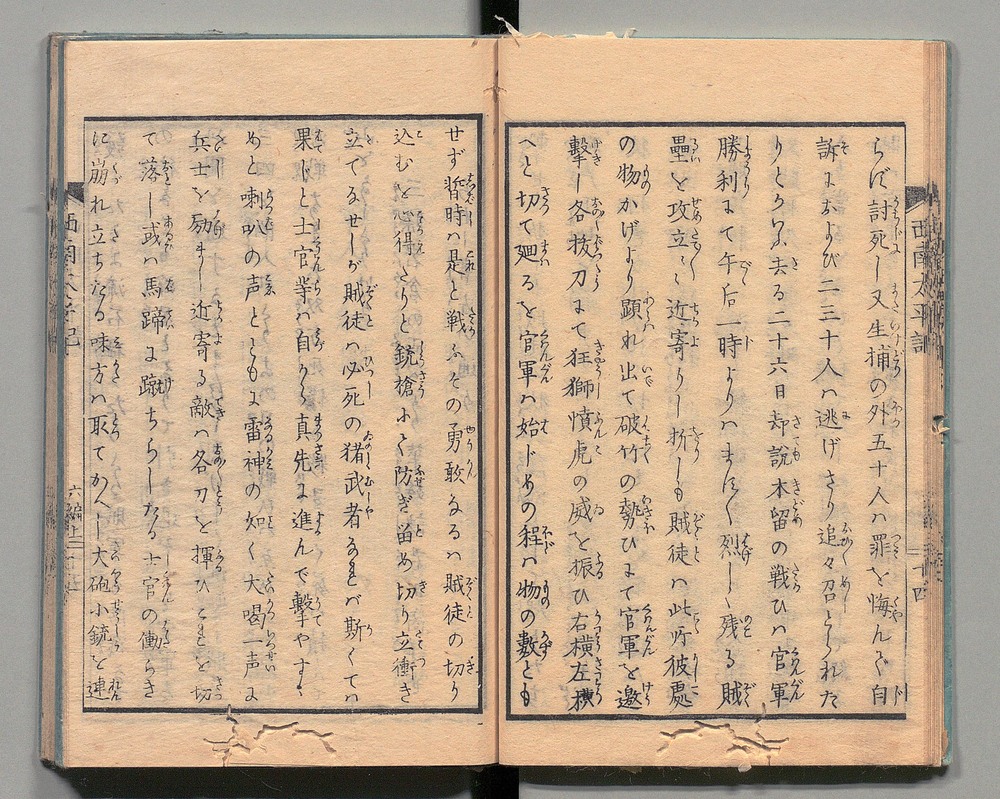 らば討死し又生捕の外五十人ハ罪を悔んで自
訴におよび二三十人ハ逃げさり追々召とられた
りとかや去る二十六日却説木留の戦ひハ官軍
勝利にて午后一時よりハまほ〱烈しく残る賊
壘を攻立〻近寄りし折しも賊徒ハ此所彼處
の物かげより顕れ出て破竹の勢ひにて官軍を邀
撃し各抜刀にて狂獅憤虎の威を振ひ右横左横
へと切て廻るを官軍ハ始じめの程ハ物の数とも
せず暫時ハ是と戦ふその勇敢なるハ賊徒の切り
込むを心得たりと銃槍ふて防ぎ留め切り立衝き
立てるせしが賊徒ハ必死の猪武者なれバ斯くてハ
果じと士官等ハ自から真先に進んで撃やすゝ
めと喇叭の声とともに雷神の如く大喝一声に
兵士を励まし近寄る敵ハ各刀を揮ひこれを切
て落し或ハ馬蹄に蹴ちらしたる士官の働らき
に崩れ立ちたる味方ハ取てかへし大砲小銃を連
西南太平記
二十四
西南太平記
六編上